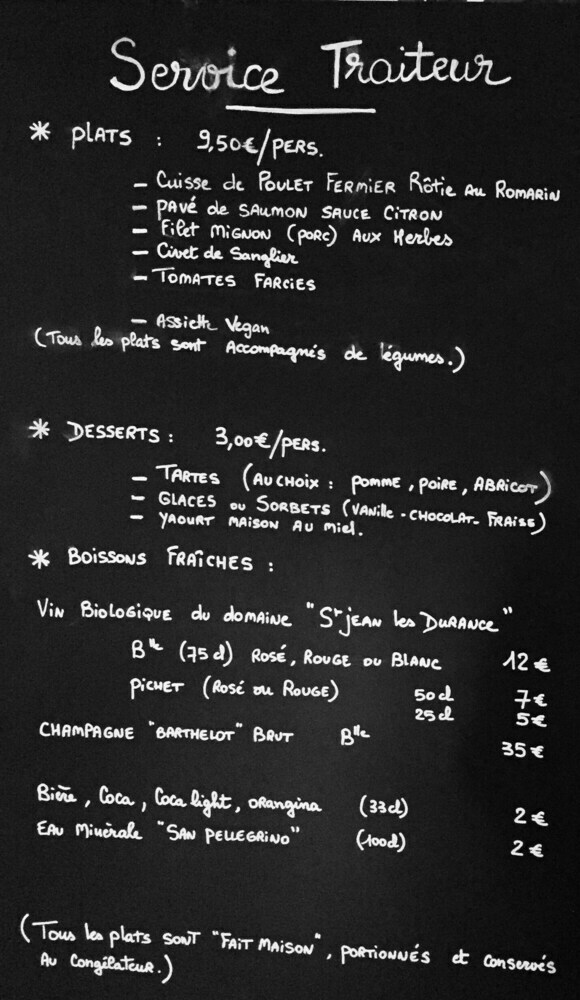 Service Traiteur
* PLATS : 9,50€/PERS.
- Cuisse de POULET FERMIER Rôtie AU ROMARIN
- PAVÉ de SAUMON SAUCE CITRON
- Filet MIGNON (PORC) AUX Herbes
- Civet de Sanglier
- TOMATES FARCIES
- Assiette Vegan
(Tous les plats sont Accompagnés de légumes.)
* DESSERTS : 3,00€/PERS.
- TARTES (AU CHOIX : POMME, POIRE, ABRICOT)
- GLACES OU SORBETS (VANILLE - CHOCOLAT - FRAISE)
- YAOURT MAISON AU MIEL.
* BOISSONS FRAÎCHES :
VIN BIOLOGIQUE du DOMAINE "St JEAN les DURANCE"
Blle (75 cl) ROSÉ, ROUGE OU BLANC 12 €
PICHET (ROSÉ OU ROUGE) 50 cl 7 €
25 cl 5 €
CHAMPAGNE "BARTHELOT" BRUT Blle 35 €
Bière, Coca, Coca light, ORANGINA (33cl) 2 €
EAU Minérale "SAN PELLEGRINO" (100cl) 2 €
(Tous les plats SONT "FAIT MAISON", PORTIONNÉS et conservés
AU Congélateur.)